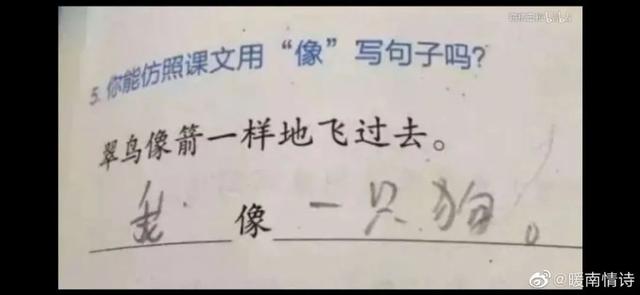 5. 你能仿照课文用“像”写句子吗？
翠鸟像箭一样地飞过去。
我像一只狗。
@暖南情诗